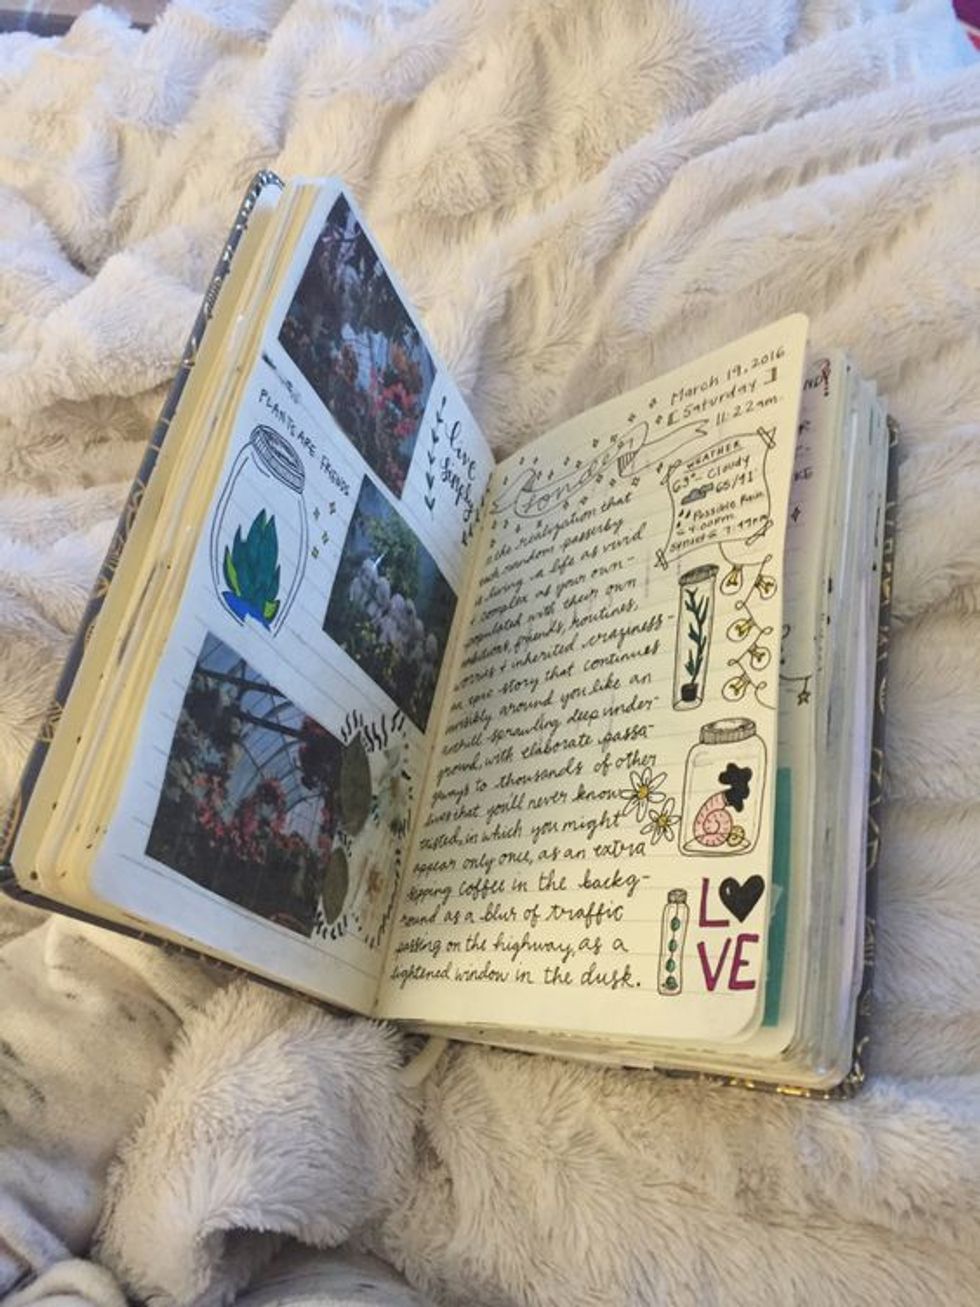 PLANTS ARE FRIENDS
live
simply
March 19, 2016
[Saturday]
11:22am.
WEATHER
63° Cloudy
Possible Rain
Sonder
the realization that
each random passerby
is living a life as vivid
+ complex as your own-
populated with their own
ambitions, friends, routines,
worries + inherited craziness-
an epic story that continues
invisibly around you like an
anthill sprawling deep under-
ground, with elaborate passa-
geways to thousands of other
lives that you'll never know
existed, in which you might
appear only once, as an extra
sipping coffee in the backg-
round as a blur of traffic
passing on the highway, as a
lightened window in the dusk.
LOVE